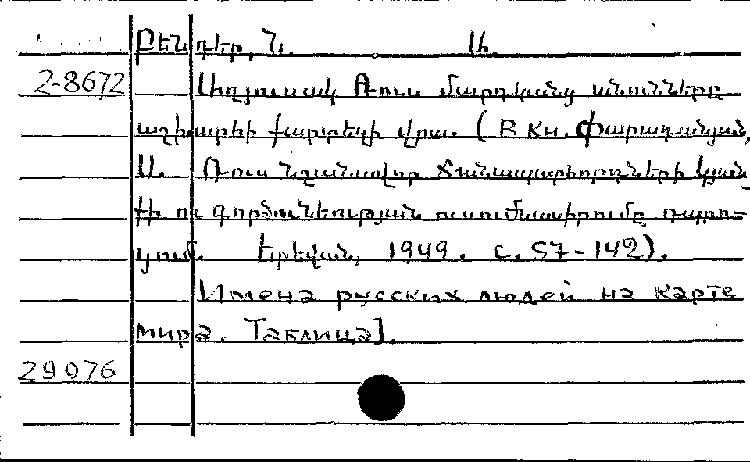 Բենդեր, Ն. Ա.
2-8672 Աղյուսակ Ռուս մարդկանց անունները
աշխարհի քարտեզի վրա. (В кн. Փարադանյան,
Ա. Ռուս նշանավոր ճանապարհորդների կյան-
քի ու գործունեության ուսումնասիրումը դպրո-
ցում. Երեվան, 1949. с. 57-142).
Имена русских людей на карте
мира. Таблица].
29076